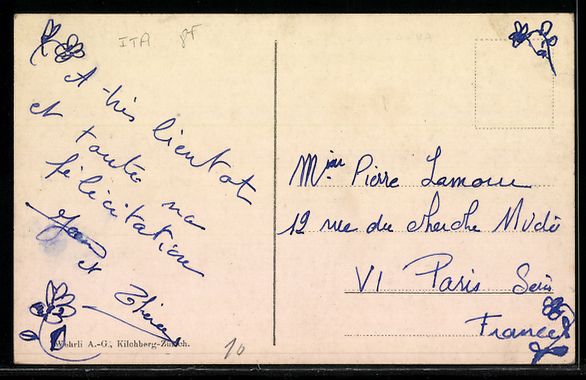 ITA
A très bientot
et toutes nos
félicitation
Jean
et Thérese
Wehrli A.-G., Kilchberg-Zürich.
10
Mr Pierre Lamour
12 rue du cherche Midi
VI Paris Sein
France